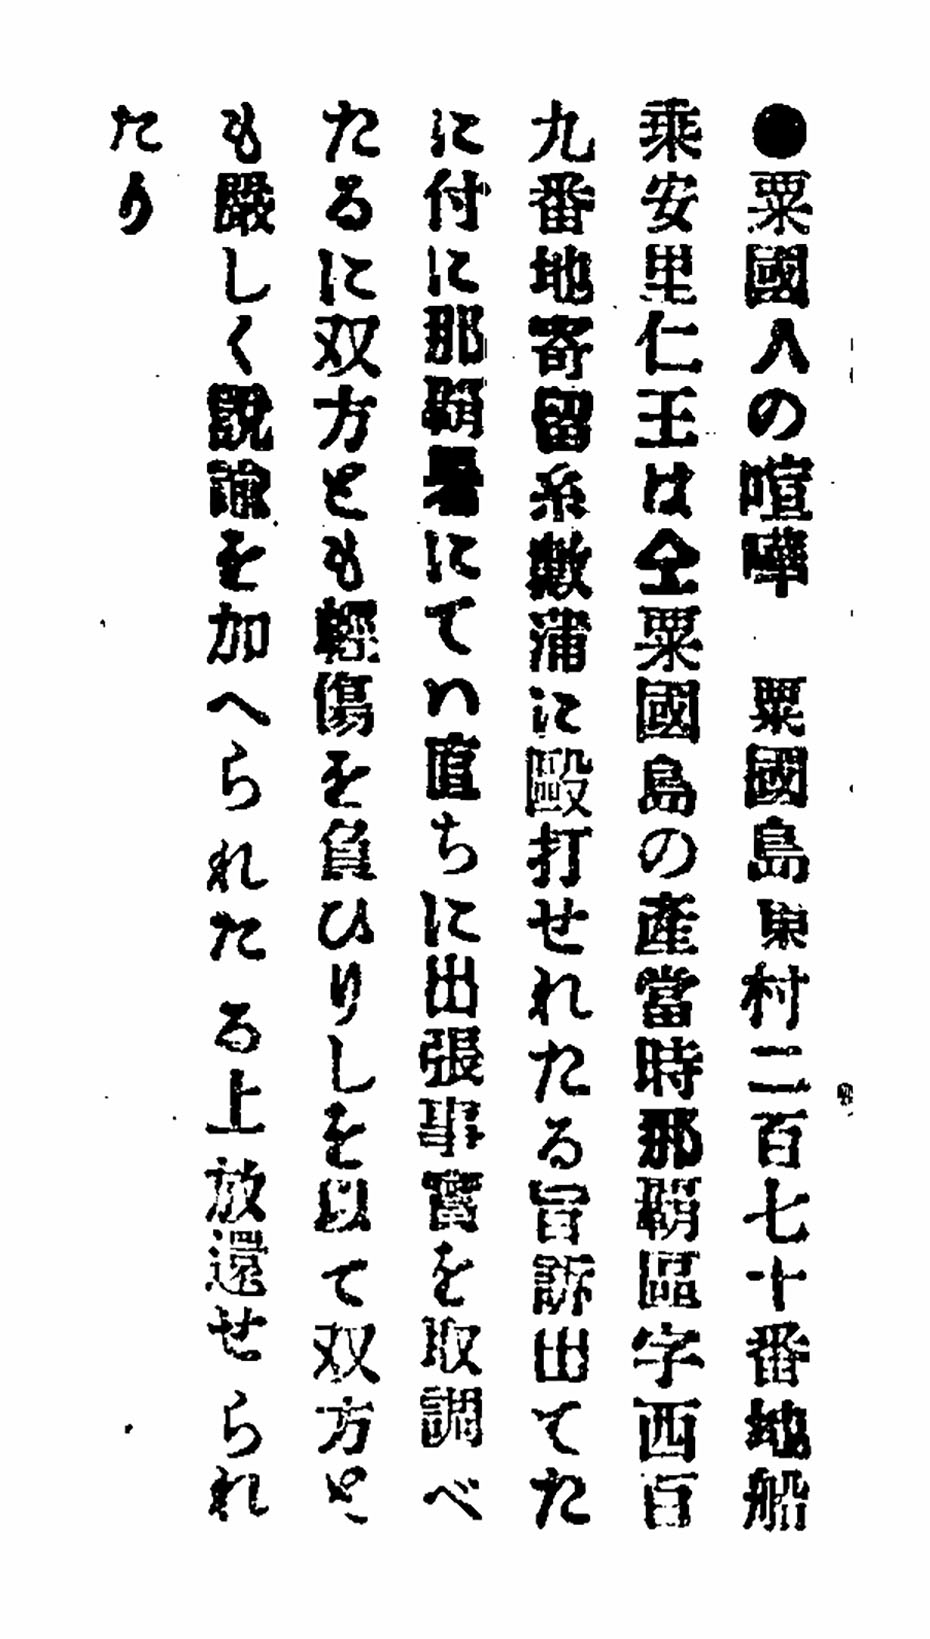 ●粟國人の喧嘩　粟國島東村二百七十番地船
乘安里仁王は仝粟國島の產當時那覇區字西百
九番地寄留糸數蒲に毆打せれたる旨訴出てた
に付に那覇署にてハ直ちに出張事實を取調べ
たるに双方とも輕傷を負ひりしを以て双方と
も嚴しく說諭を加へられたる上放還せられ
たり